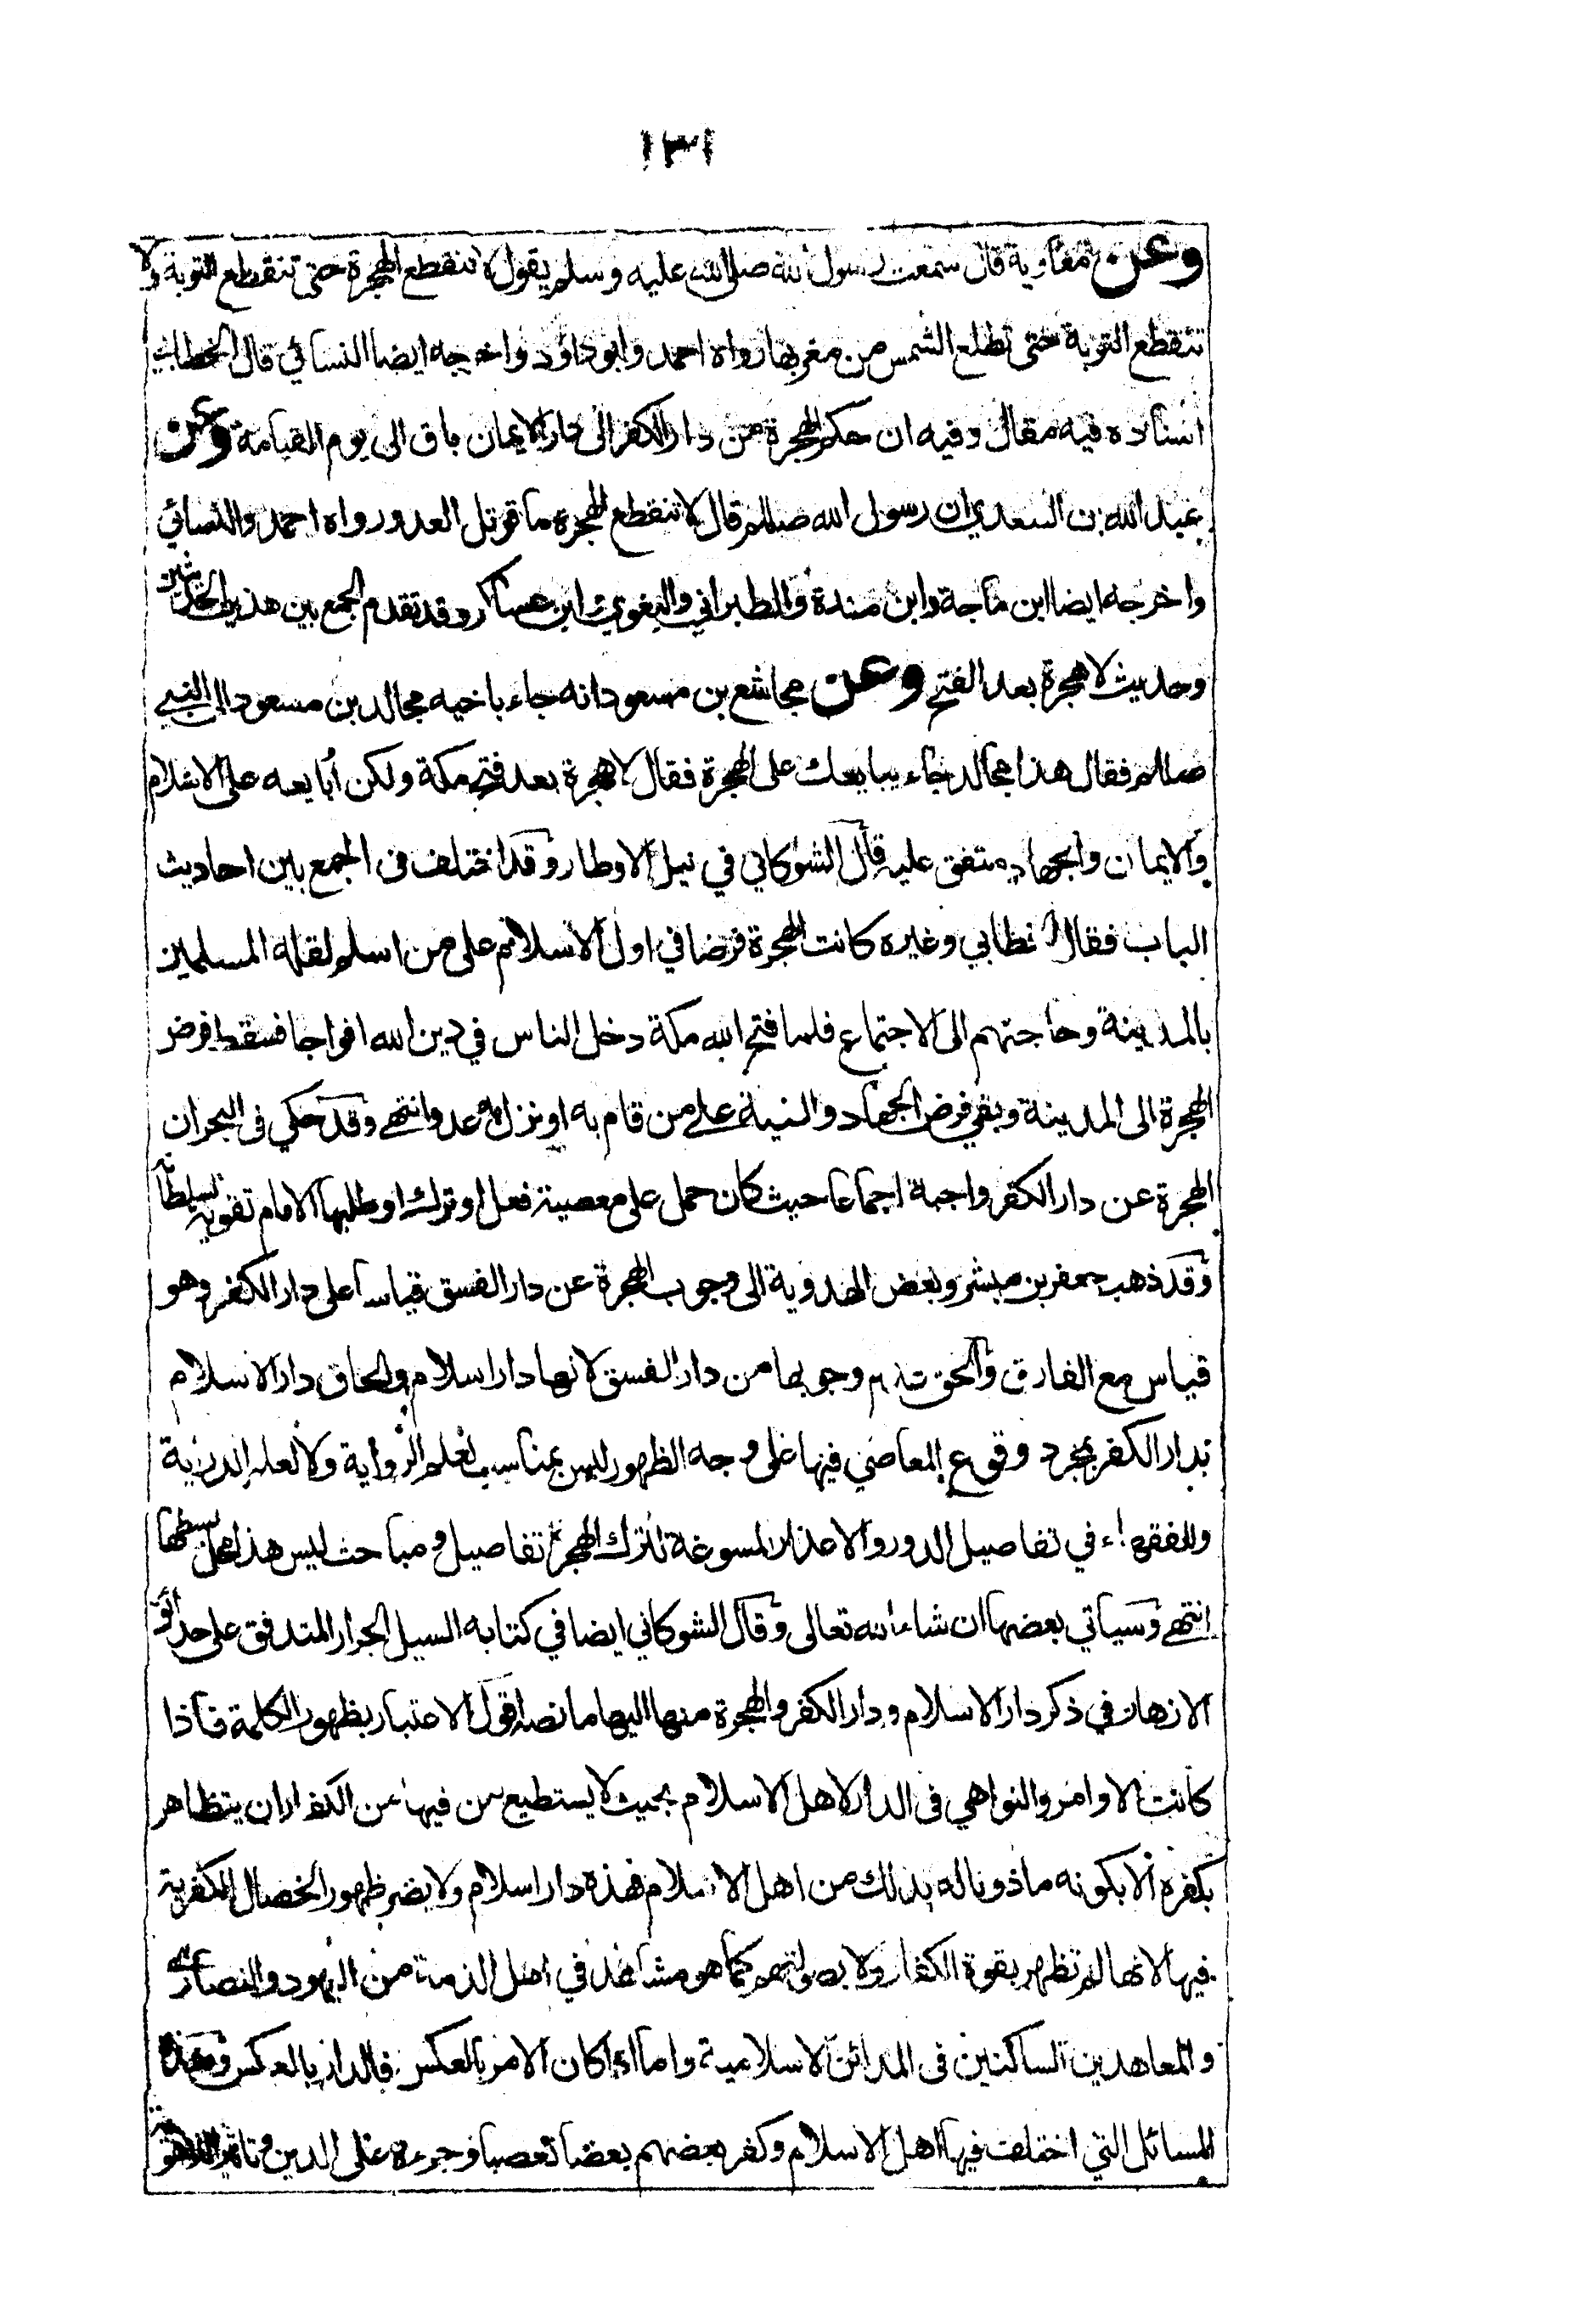 ١٣١
وعن معاوية قال سمعت رسول الله صلى الله عليه وسلم يقول لا تنقطع الهجرة حتى تنقطع التوبة ولا
تنقطع التوبة حتى تطلع الشمس من مغربها رواه احمد وابو داؤد واخرجه ايضا النسائي قال الخطابي
اسناده فيه مقال وفيه ان حكم الهجرة من دار الكفر الى دار الايمان باق الى يوم القيامة وعن
عبد الله بن السعدي ان رسول الله صللم قال لا تنقطع الهجرة ما قوتل العدو رواه احمد والنسائي
واخرجه ايضا ابن ماجة وابن مندة والطبراني والبغوي وابن عساكر وقد تقدم الجمع بين هذين الحديثين
وحديث لا هجرة بعد الفتح وعن مجاشع بن مسعود انه جاء باخيه مجالد بن مسعود الى النبي
صللم فقال هذا مجالد جاء يبايعك على الهجرة فقال لا هجرة بعد فتح مكة ولكن أبايعه على الاسلام
والايمان والجهاد متفق عليه قال الشوكاني في نيل الاوطار وقد اختلف فى الجمع بين احاديث
الباب فقال الخطابي وغيره كانت الهجرة فرضا في اول الاسلام على من اسلم لقلة المسلمين
بالمدينة وحاجتهم الى الاجتماع فلما فتح الله مكة دخل الناس في دين الله افواجا فسقط فرض
الهجرة الى المدينة وبقي فرض الجهاد والنية على من قام به او نزل به عدو انتهى وقد حكي فى البحران
الهجرة عن دار الكفر واجبة اجماعا حيث كان حمل على معصية فعل او ترك او طلبها الامام تقوية لسلطانه
وقد ذهب جعفر بن مبشر وبعض الهدوية الى وجوب الهجرة عن دار الفسق قياسا على دار الكفر وهو
قياس مع الفارق والحق عدم وجوبها من دار الفسق لانها دار اسلام والحاق دار الاسلام
بدار الكفر بمجرد وقوع المعاصي فيها على وجه الظهور ليس بمناسب لعلم الرواية ولا لعلم الدراية
وللفقهاء في تفاصيل الدور والاعذار المسوغة لترك الهجرة تفاصيل ومباحث ليس هذا محل بسطها
انتهى وسياتي بعضها ان شاء الله تعالى وقال الشوكاني ايضا في كتابه السيل الجرار المتدفق على حدائق
الازهار في ذكر دار الاسلام ودار الكفر والهجرة منها اليها ما نصه اقول الاعتبار بظهور الكلمة فاذا
كانت الاوامر والنواهي فى الدار لاهل الاسلام بحيث لا يستطيع من فيها من الكفار ان يتظاهر
بكفره الا بكونه ماذونا له بذلك من اهل الاسلام فهذه دار اسلام ولا يضر ظهور الخصال الكفرية
فيها لانها لم تظهر بقوة الكفار ولا بصولتهم كما هو مشاهد في اهل الذمة من اليهود والنصارى
والمعاهدين الساكنين فى المدائن الاسلامية واما اذا كان الامر بالعكس فالدار بالعكس وهذه
المسائل التي اختلف فيها اهل الاسلام وكفر بعضهم بعضا تعصبا وجرءة على الدين